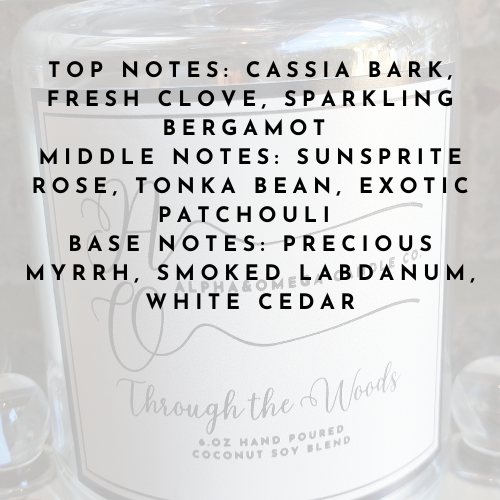 TOP NOTES: CASSIA BARK,
FRESH CLOVE, SPARKLING
BERGAMOT
MIDDLE NOTES: SUNSPRITE
ROSE, TONKA BEAN, EXOTIC
PATCHOULI
BASE NOTES: PRECIOUS
MYRRH, SMOKED LABDANUM,
WHITE CEDAR
A
O
ALPHA&OMEGA CANDLE CO.
Through the Woods
6.OZ HAND POURED
COCONUT SOY BLEND